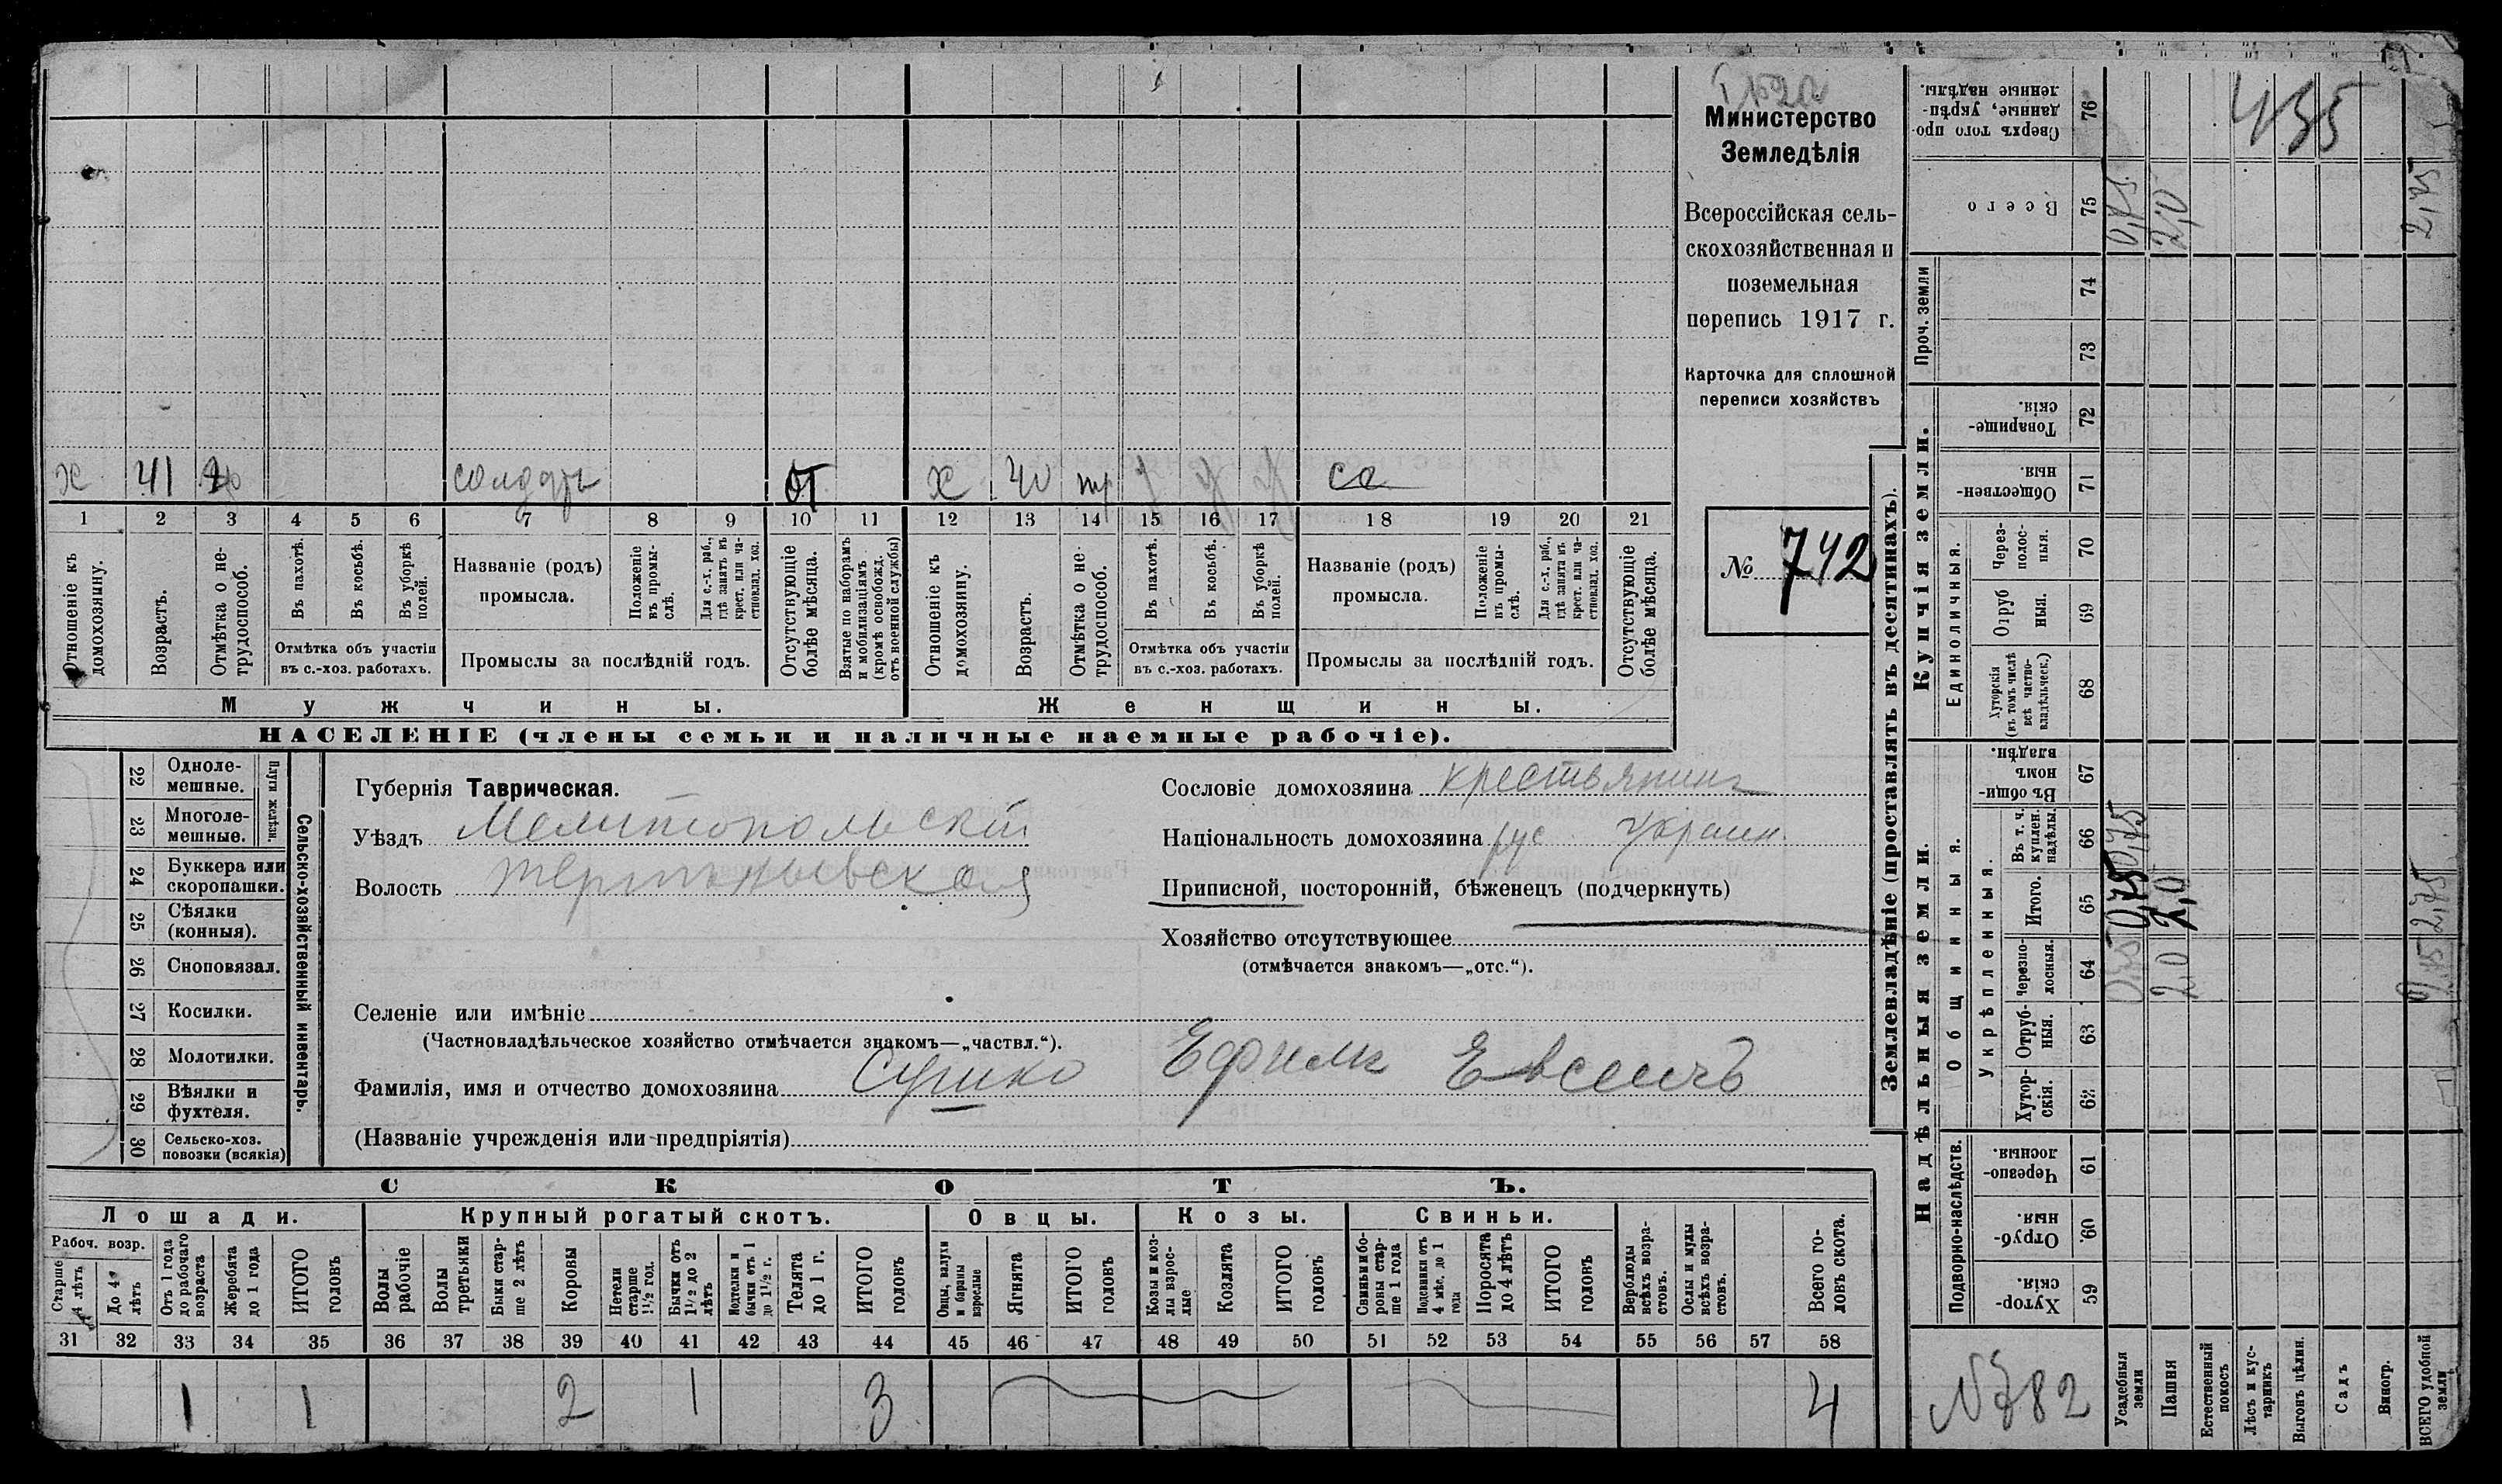 Министерство
Земледѣлія
Всероссійская сель-
скохозяйственная и
поземельная
перепись 1917 г.
Карточка для сплошной
переписи хозяйствъ
№ 742
х 41 солдатъ от х 40
1 2 3 4 5 6 7 8 9 10 11 12 13 14 15 16 17 18 19 20 21
Отношеніе къ домохозяину.
Возрастъ.
Отмѣтка о не-трудоспособ.
Въ пахотѣ.
Въ косьбѣ.
Въ уборкѣ полей.
Отмѣтка объ участіи
въ с.-хоз. работахъ.
Названіе (родъ)
промысла.
Положеніе въ промы-слѣ.
Для с.-х. раб., гдѣ занятъ въ крест. или ча-стновлад. хоз.
Промыслы за послѣдній годъ.
Отсутствующіе болѣе мѣсяца.
Взятые по наборамъ и мобилизаціямъ (кромѣ освобожд. отъ военной службы)
Отношеніе къ домохозяину.
Возрастъ.
Отмѣтка о не-трудоспособ.
Въ пахотѣ.
Въ косьбѣ.
Въ уборкѣ полей.
Отмѣтка объ участіи
въ с.-хоз. работахъ.
Названіе (родъ)
промысла.
Положеніе въ промы-слѣ.
Для с.-х. раб., гдѣ занята въ крест. или ча-стновлад. хоз.
Промыслы за послѣдній годъ.
Отсутствующіе болѣе мѣсяца.
Мужчины. Женщины.
НАСЕЛЕНІЕ (члены семьи и наличные наемные рабочіе).
Сельско-хозяйственный инвентарь.
Плуги желѣзн.
22 Однолемешные.
23 Многолемешные.
24 Буккера или скоропашки.
25 Сѣялки (конныя).
26 Сноповязал.
27 Косилки.
28 Молотилки.
29 Вѣялки и фухтеля.
30 Сельско-хоз. повозки (всякія)
Губернія Таврическая.
Уѣздъ Мелитопольскій
Волость
Сословіе домохозяина крестьянинъ
Національность домохозяина рус украин.
Приписной, посторонній, бѣженецъ (подчеркнуть)
Хозяйство отсутствующее
(отмѣчается знакомъ—„отс.“).
Селеніе или имѣніе
(Частновладѣльческое хозяйство отмѣчается знакомъ—„частвл.“).
Фамилія, имя и отчество домохозяина Сушко Ефимъ Евсеичъ
(Названіе учрежденія или предпріятія)
СКОТЪ.
Лошади. Крупный рогатый скотъ. Овцы. Козы. Свиньи.
Рабоч. возр.
Старше 4 лѣтъ
До 4 лѣтъ
Отъ 1 года до рабочаго возраста
Жеребята до 1 года
ИТОГО головъ
Волы рабочіе
Волы третьяки
Быки стар-ше 2 лѣтъ
Коровы
Нетели старше 1½ год.
Бычки отъ 1½ до 2 лѣтъ
Нодтелки и бычки отъ 1 до 1½ г.
Телята до 1 г.
ИТОГО головъ
Овцы, валухи и бараны взрослые
Ягнята
ИТОГО головъ
Козы и коз-лы взрос-лые
Козлята
ИТОГО головъ
Свиньи и бо-ровы стар-ше 1 года
Подсвинки отъ 4 мѣс. до 1 года
Поросята до 4 лѣтъ
ИТОГО головъ
Верблюды всѣхъ возра-стовъ.
Ослы и мулы всѣхъ возра-стовъ.
Всего го-ловъ скота.
31 32 33 34 35 36 37 38 39 40 41 42 43 44 45 46 47 48 49 50 51 52 53 54 55 56 57 58
1 1 2 1 3 4
Землевладѣніе (проставлять въ десятинахъ).
Купчія земли.
Надѣльныя земли.
Проч. земли
Единоличныя.
Общинныя.
Укрѣпленныя.
Подворно-наслѣдств.
Сверхъ того про-данные, укрѣп-ленные надѣлы. 76
Всего 75 0,75 2,0 2,75
74
73
Товарище-скія. 72
Обществен-ныя. 71
Через-полос-ныя. 70
Отруб ныя. 69
Хуторскія (въ томъ числѣ всѣ частно-владѣльческ.) 68
Въ общин-номъ владѣн. 67
Въ т. ч. куплен. надѣлы. 66 0,75
Итого. 65 0,75 2,0 2,75
Черезпо-лосныя. 64 2,0
Отруб-ныя. 63
Хутор-скія. 62
Черезпо-лосныя. 61
Отруб-ныя. 60
Хутор-скія. 59
435
№ 382
Усадебныя земли
Пашня
Естественный покосъ
Лѣсъ и кус-тарникъ
Выгонъ цѣлин.
Садъ
Виногр.
ВСЕГО удобной земли